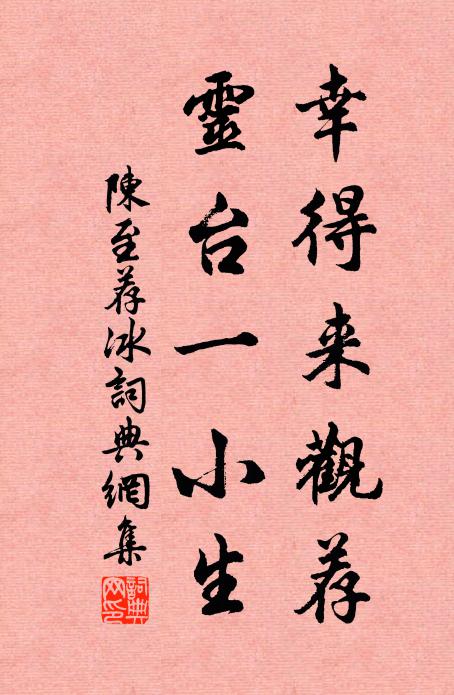 幸得来觀荐
靈台一小生
陳至荐冰詞典網集
詞典網印